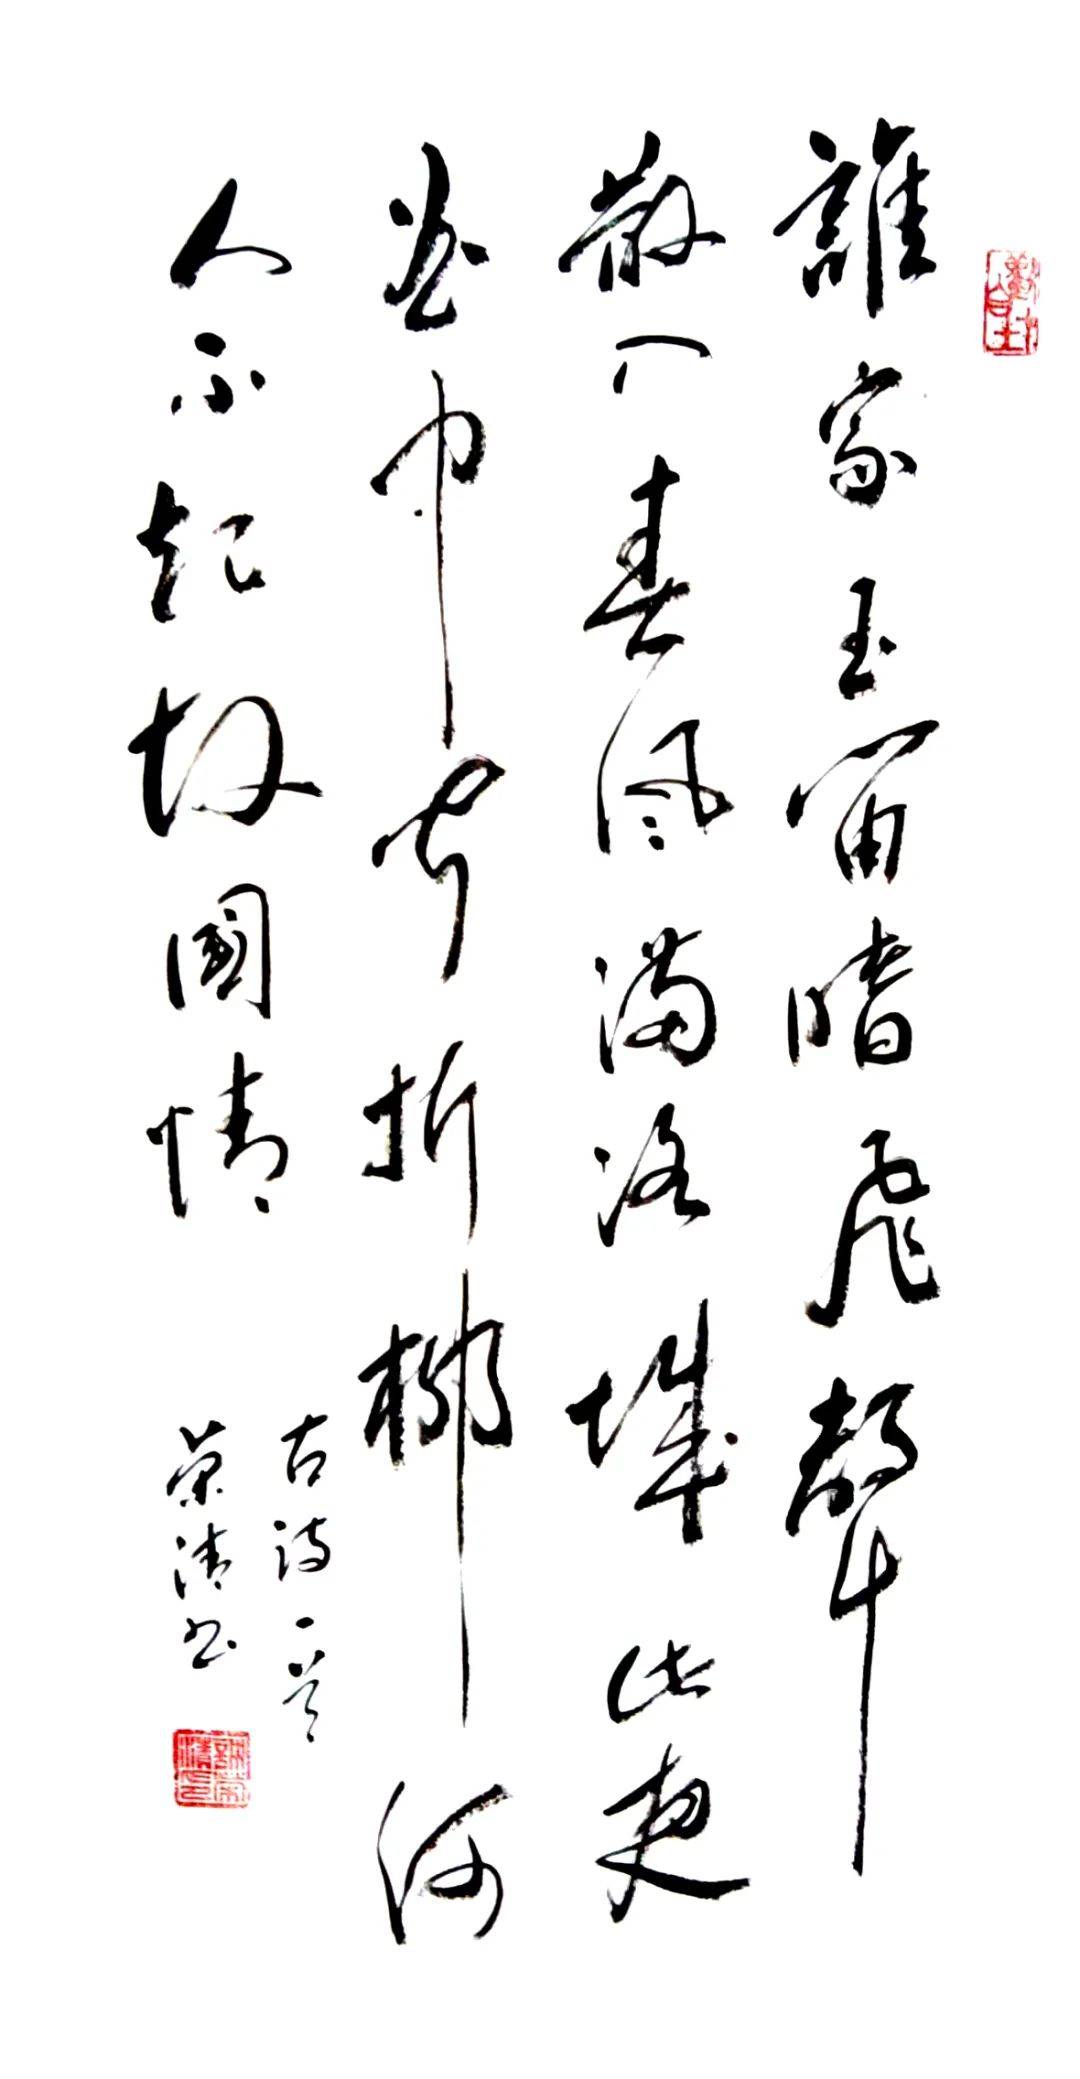 誰家玉笛暗飛聲
散入春風滿洛城此夜
曲中聞折柳何
人不起故園情
古诗一首
荣清书